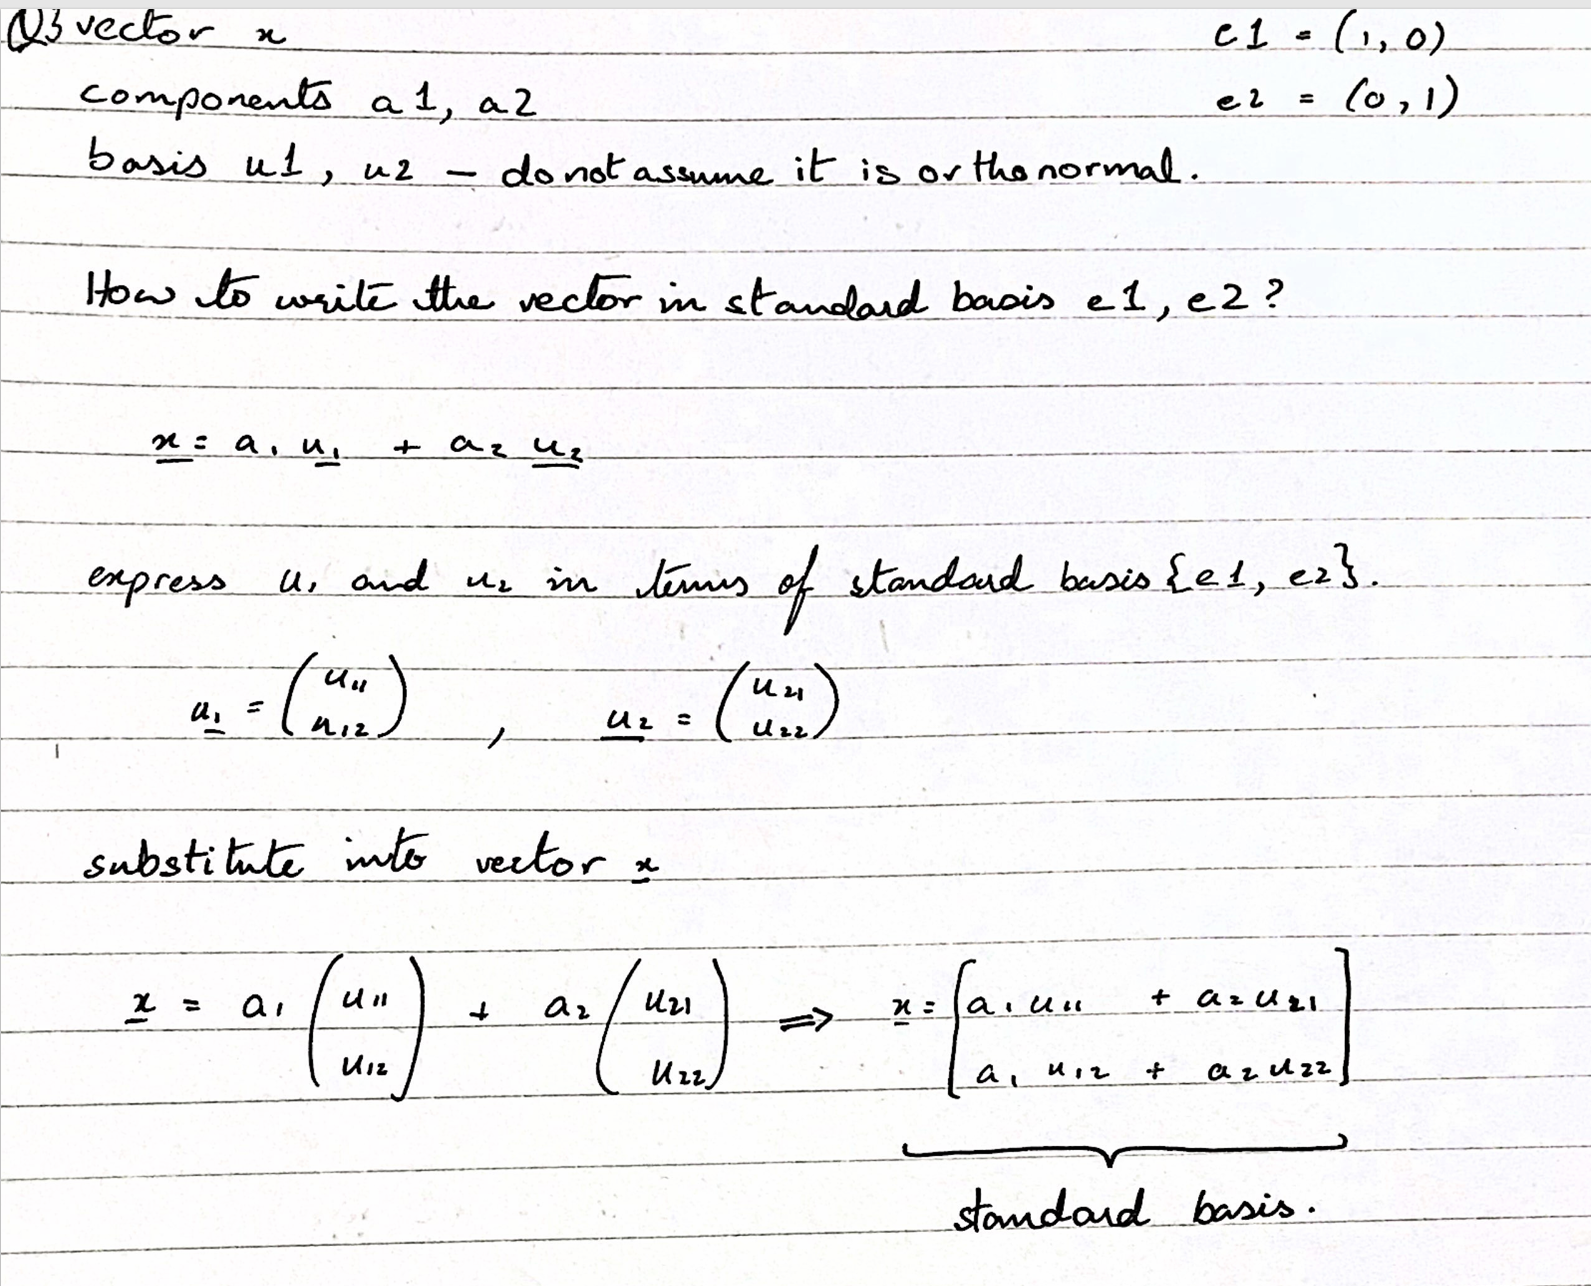 Q3 vector x e1 = (1, 0)
components a1, a2 e2 = (0, 1)
basis u1, u2 – do not assume it is orthonormal.
How to write the vector in standard basis e1, e2?
x = a₁ u₁ + a₂ u₂
express u₁ and u₂ in terms of standard basis {e1, e2}.
u₁ = (u₁₁ u₁₂) , u₂ = (u₂₁ u₂₂)
substitute into vector x
x = a₁ (u₁₁ u₁₂) + a₂ (u₂₁ u₂₂) ⇒ x = [a₁ u₁₁ + a₂ u₂₁ a₁ u₁₂ + a₂ u₂₂]
standard basis.